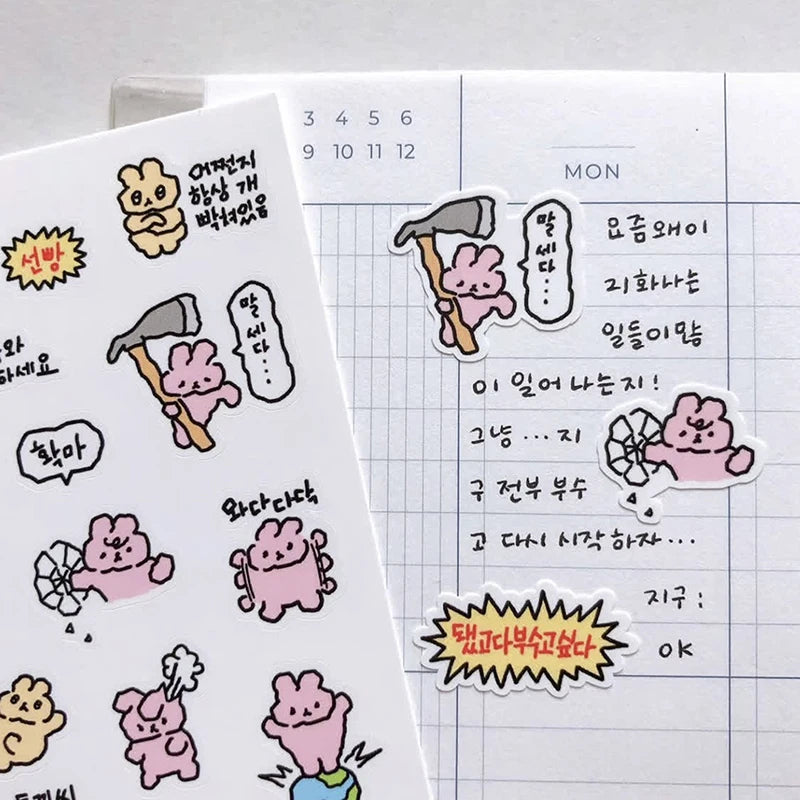 어쩐지
항상 개
빡쳐있음
선빵
말
세
다
...
하세요
확마
와다다닥
3 4 5 6
9 10 11 12
MON
말
세
다
...
요즘왜이
리화나는
일들이많
이 일어나는지!
그냥...지
구 전부 부수
고 다시 시작하자...
지구:
OK
됐고다부수고싶다